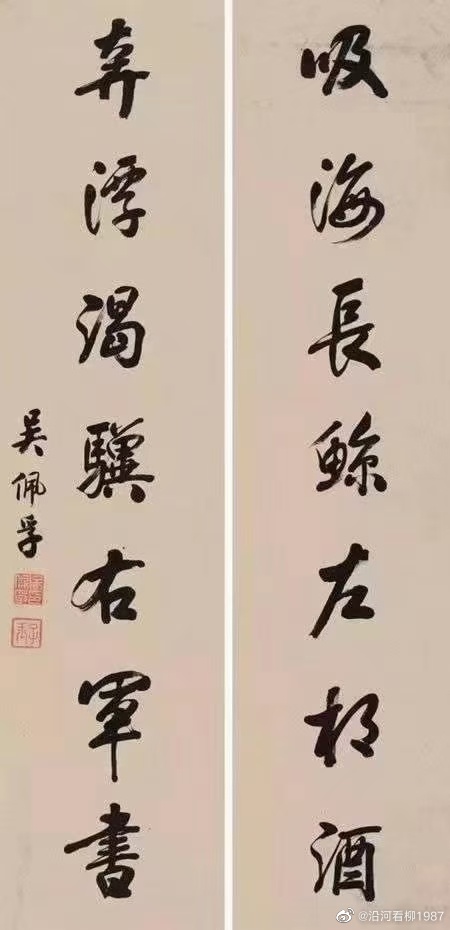 吸海長鯨左相酒
奔潭渴驥右軍書
吳佩孚
子玉
@沿河看柳1987